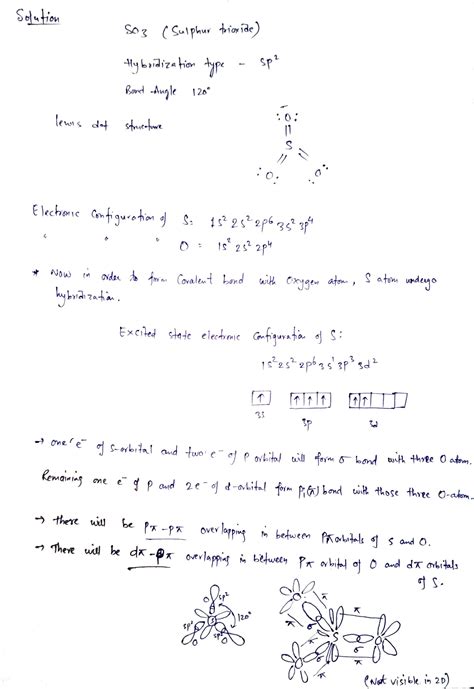 Solution
SO3 (Sulphur trioxide)
Hybridization type - sp²
Bond Angle 120°
lewis dot structure
:O:
||
S
:O: :O:
Electronic Configuration of S: 1s² 2s² 2p⁶ 3s² 3p⁴
" " " O = 1s² 2s² 2p⁴
* Now in order to form Covalent bond with Oxygen atom, S atom undergo
hybridization.
Excited state electronic Configuration of S:
1s² 2s² 2p⁶ 3s¹ 3p³ 3d²
↑ ↑ ↑ ↑ ↑ ↑
3s 3p 3d
→ one e⁻ of s-orbital and two e⁻ of p orbital will form σ bond with three O atom.
Remaining one e⁻ of p and 2e⁻ of d-orbital form Pi(π) bond with those three O-atom.
→ there will be pπ-pπ overlapping in between Pπ orbitals of S and O.
→ There will be dπ-pπ overlapping in between Pπ orbital of O and dπ orbitals
of S.
O sp²
S 120°
sp² sp²
O O
π π
S σ
σ π
σ π
(Not visible in 2D)